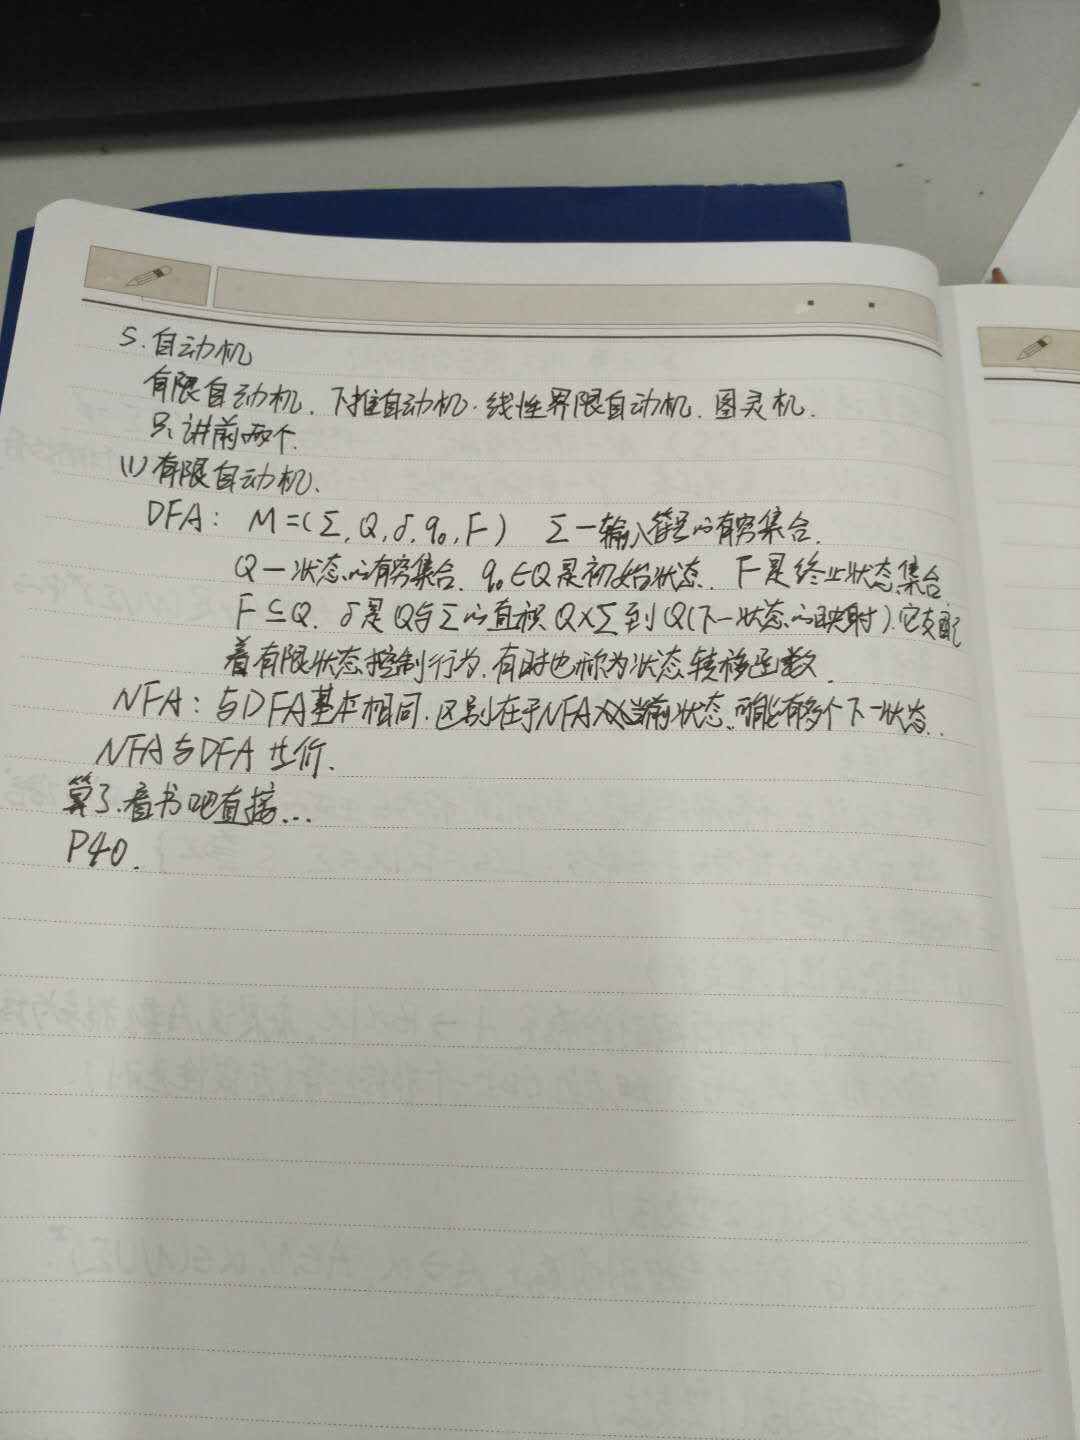 5. 自动机
有限自动机、下推自动机、线性界限自动机、图灵机.
只讲前两个.
(1) 有限自动机.
DFA: M=(Σ, Q, δ, q₀, F) Σ—输入符号的有穷集合.
Q—状态的有穷集合. q₀∈Q是初始状态. F是终止状态集合
F⊆Q. δ是Q与Σ的直积Q×Σ到Q(下一状态的映射).它支配
着有限状态控制行为.有时也称为状态转移函数.
NFA: 与DFA基本相同.区别在于NFA当前状态.可能有多个下一状态.
NFA与DFA 等价.
算了.看书吧直接...
P40.